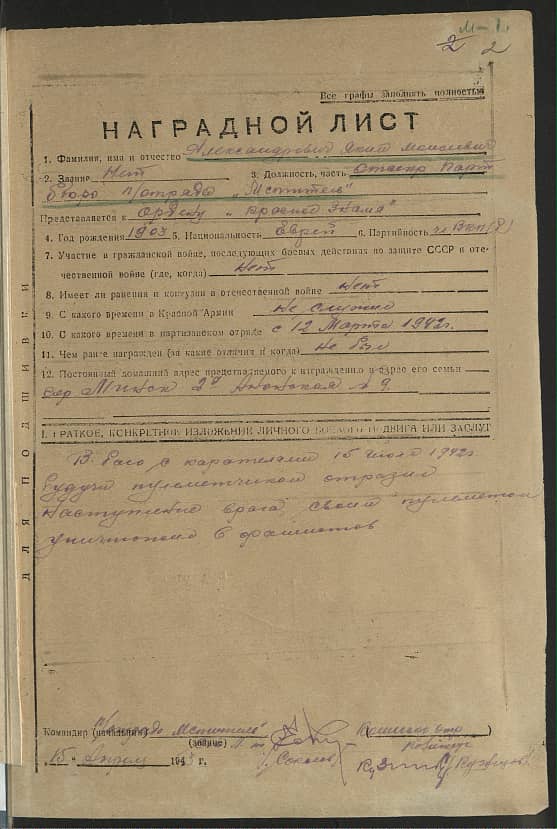 2 2
Все графы заполнять полностью
НАГРАДНОЙ ЛИСТ
1. Фамилия, имя и отчество Александрович Яким Моисеевич
2. Звание Нет 3. Должность, часть Отсекр Парт
бюро п/отряда „Мститель"
Представляется к Ордену „Красное Знамя"
4. Год рождения 1903 5. Национальность Еврей 6. Партийность чл ВКП(б)
7. Участие в гражданской войне, последующих боевых действиях по защите СССР и оте-
чественной войне (где, когда) Нет
8. Имеет ли ранения и контузии в отечественной войне Нет
9. С какого времени в Красной Армии Не служил
10. С какого времени в партизанском отряде с 12 Марта 1942г.
11. Чем ранее награжден (за какие отличия и когда) Не был
12. Постоянный домашний адрес представляемого к награждению и адрес его семьи
гор Минск 2я № 9
I. КРАТКОЕ, КОНКРЕТНОЕ ИЗЛОЖЕНИЕ ЛИЧНОГО БОЕВОГО ПОДВИГА ИЛИ ЗАСЛУГ
В бою с карателями 15 июля 1942г.
будучи пулеметчиком отразил
наступление врага своим пулеметом
уничтожил 6 фашистов
ДЛЯ ПОДШИВКИ
Командир (начальник) п/отряда Мститель"
(звание)
Комиссар отр
Соколов Кузнецов
15 Апрель 1943 г.